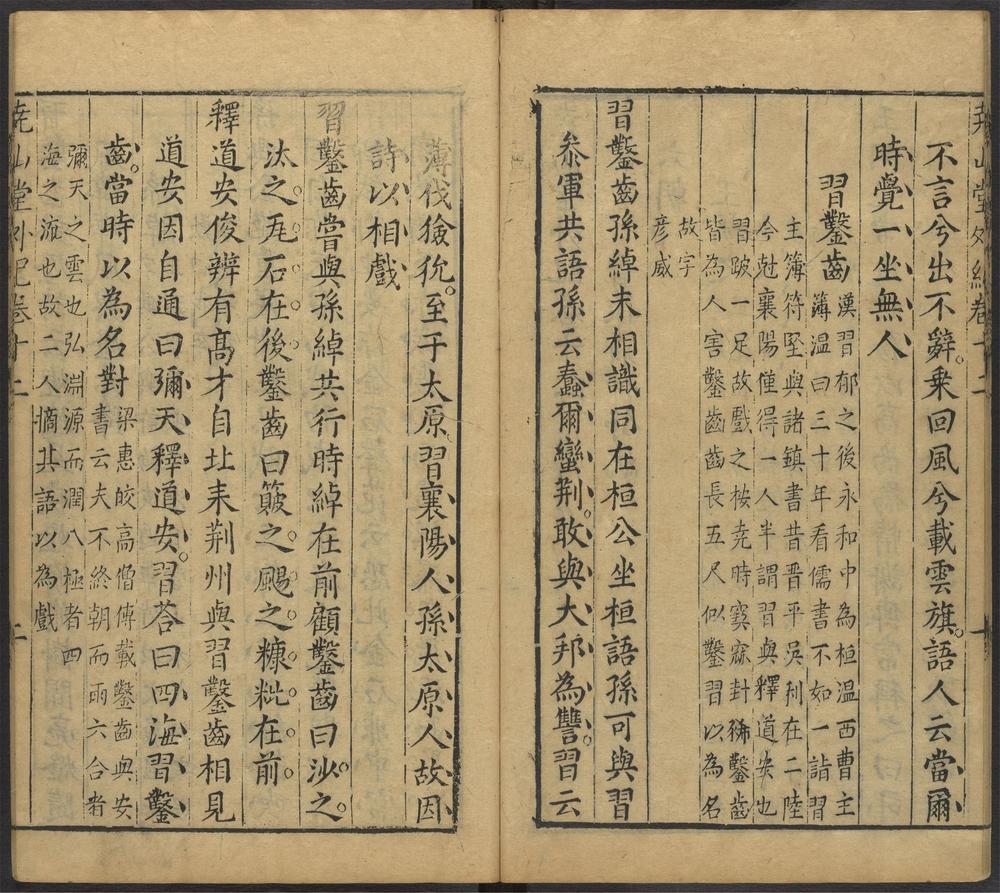 尭山堂外紀卷十二
不言兮出不辭乗回風兮載雲旗語人云當爾
時覺一坐無人
習鑿齒
漢習郁之後永和中為桓温西曹主
簿温曰三十年看儒書不如一詣習
主簿符堅與諸鎮書昔晋平吳利在二陸
今尅襄陽僅得一人半謂習與釋道安也
習跛一足故戲之桉尭時窫窳封豨鑿齒
皆為人害鑿齒齒長五尺似鑿習以為名
故字
彦威
習鑿齒孫綽未相識同在桓公坐桓語孫可與習
叅軍共語孫云蠢爾蠻荆敢與大邦為讐習云
薄伐獫狁至于太原習襄陽人孫太原人故因
詩以相戲
習鑿齒嘗與孫綽共行時綽在前顧鑿齒曰沙之
汰之瓦石在後鑿齒曰簸之颺之糠粃在前
釋道安俊辨有髙才自北来荆州與習鑿齒相見
道安因自通曰彌天釋道安習荅曰四海習鑿
齒當時以為名對
梁惠皎高僧傳載鑿齒與安
書云夫不終朝而雨六合者
彌天之雲也弘淵源而潤八極者四
海之流也故二人摘其語以為戲
尭山堂外紀卷十二 二